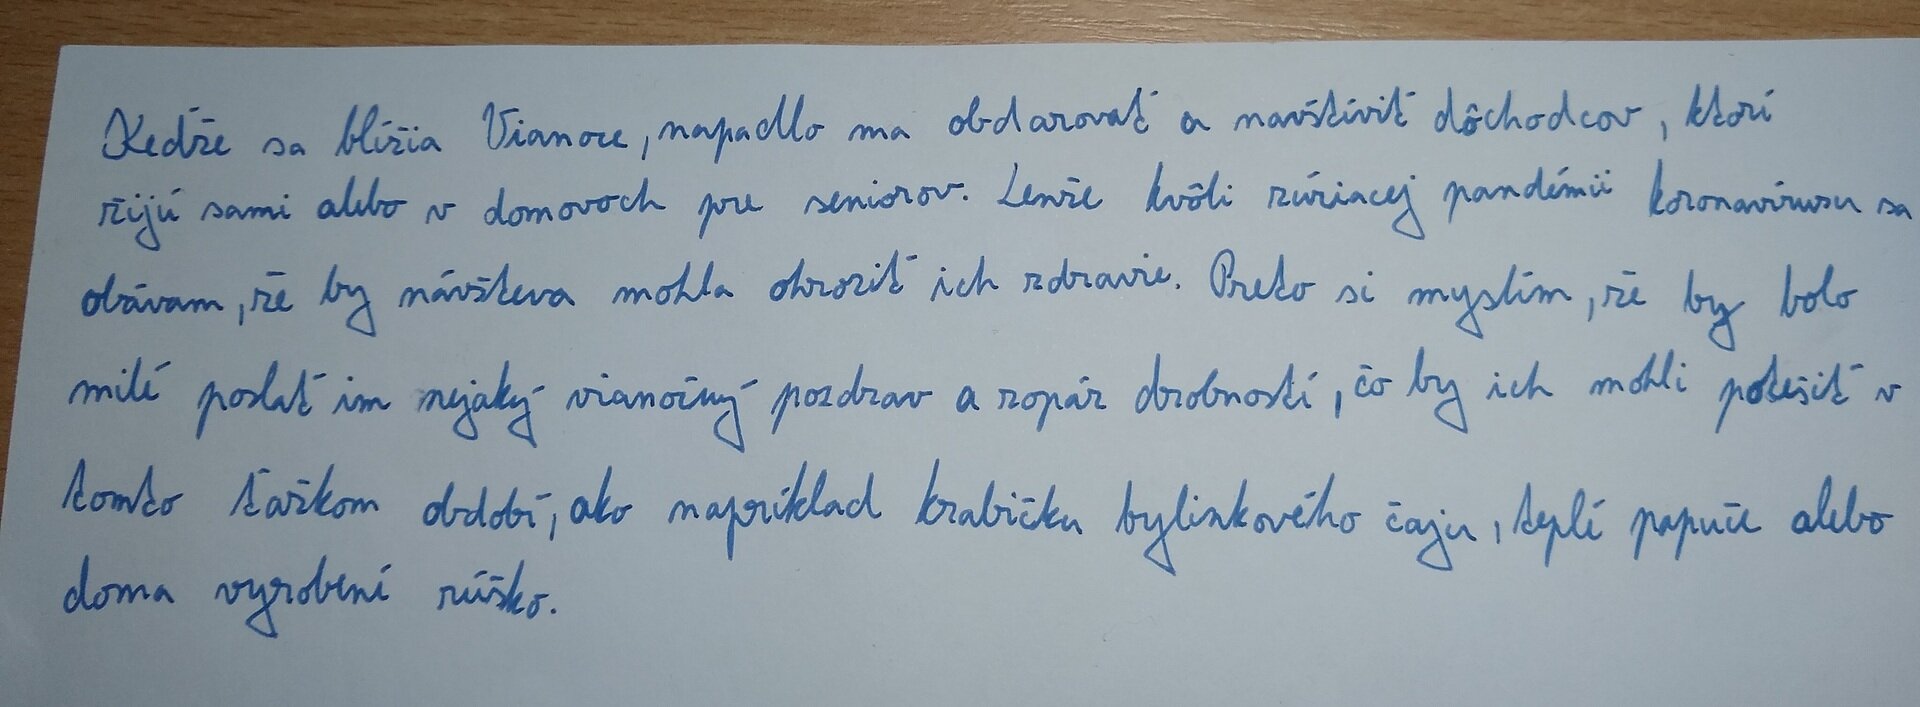 Keďže sa blížia Vianoce, napadlo ma obdarovať a navštíviť dôchodcov, ktorí
žijú sami alebo v domovoch pre seniorov. Lenže kvôli zúriacej pandémii koronavírusu sa
obávam, že by návšteva mohla ohroziť ich zdravie. Preto si myslím, že by bolo
milé poslať im nejaký vianočný pozdrav a zopár drobností, čo by ich mohli potešiť v
tomto ťažkom období, ako napríklad krabičku bylinkového čaju, teplé papuče alebo
doma vyrobené rúško.